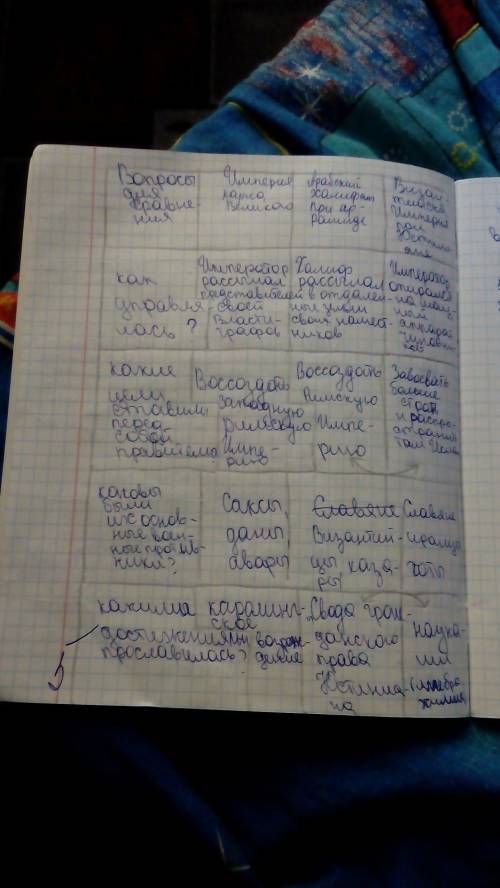 Вопросы для сравнения
Империя Карла Великого
Арабский Халифат при ар-рашиде
Византийская Империя при Юстиниане
как управлялась?
Император рассылал представителей своей власти графов
Халиф рассылал в отдаленные земли своих наместников
Император опирался на
какие цели ставили перед собой правители?
Воссоздать Западную Римскую Империю
Воссоздать Римскую Империю
Завоевать больше стран и распространить там Ислам
каковы были их основные военные противники?
Саксы, даны, авары
Славяне Византийцы, хазары
Славяне иранцы готы
какими достижениями прославилась?
каролингское возрождение
Свода гражданского права Юстиниана
науками алгебра химия
5